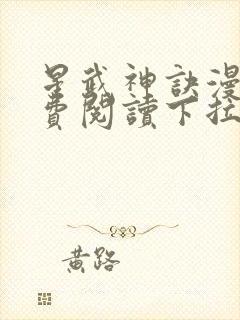 星武神訣漫
費閱讀下拉
黃路